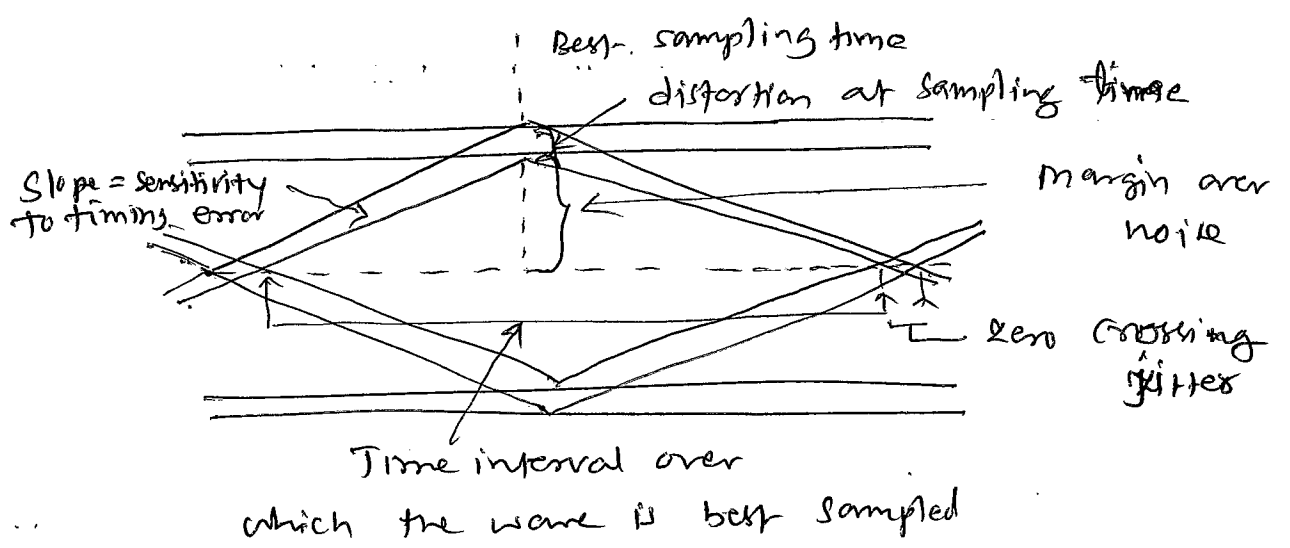 Best sampling time
distortion at sampling time
Slope = sensitivity
to timing error
Margin over
noise
Zero crossing
jitter
Time interval over
which the wave is best sampled